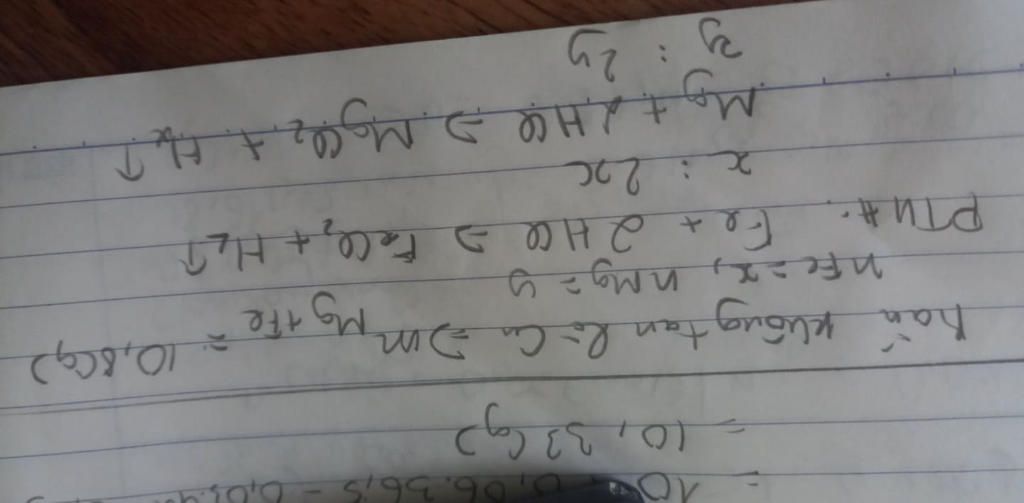 = 10 0,06.36,5 - 0,03.
= 10,33(g)
rắn không tan là Cu => mMg+Fe = 10,8(g)
nFe = x, nMg = y
PTHH: Fe + 2HCl => FeCl2 + H2↑
x : 2x
Mg + 2HCl => MgCl2 + H2↑
y : 2y